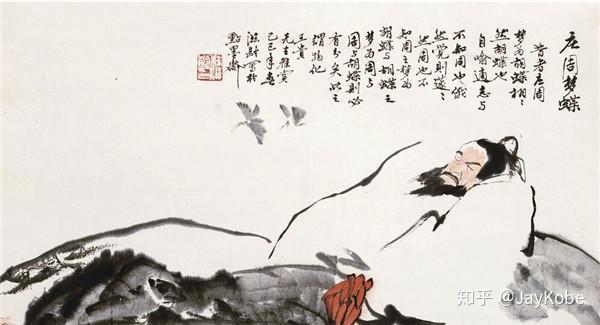 庄周梦蝶
昔者庄周
梦为胡蝶栩〻
然胡蝶也
自喻适志与
不知周也俄
然觉则遽〻
然周也不
知周之梦为
胡蝶与胡蝶之
梦为周与
周与胡蝶则必
有分矣此之
谓物化
先生雅赏
己巳年春
點墨斋
知乎 @JayKobe